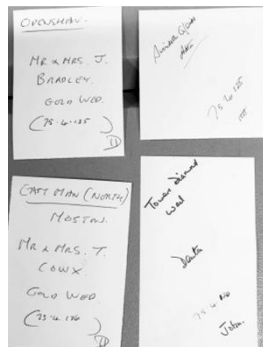 OPENSHAW.
MR & MRS. J.
BRADLEY.
GOLD WED.
(75-4-125
75-4-125
EAST MAN (NORTH)
MOSTON.
MR & MRS. T.
COWX
GOLD WED.
(75-4-126
Diamond
Wed
75-4-126
John.